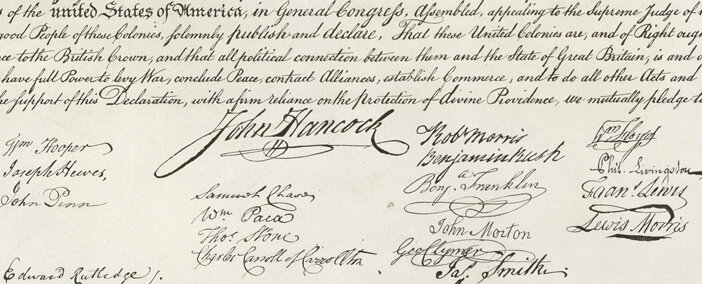 of the united States of America, in General Congress, Assembled, appealing to the Supreme Judge of
good People of these Colonies, solemnly publish and declare, That these United Colonies are, and of Right ought
to the British Crown, and that all political connection between them and the State of Great Britain, is and
have full Power to levy War, conclude Peace, contract Alliances, establish Commerce, and to do all other Acts and
the support of this Declaration, with a firm reliance on the protection of divine Providence, we mutually pledge to
John Hancock
Wm Hooper
Joseph Hewes,
John Penn
Edward Rutledge /.
Samuel Chase
Wm. Paca
Thos. Stone
Charles Carroll of Carrollton
Robt Morris
Benjamin Rush
Benja. Franklin
John Morton
Geo Clymer
Jas. Smith
Wm Floyd
Phil. Livingston
Frans. Lewis
Lewis Morris